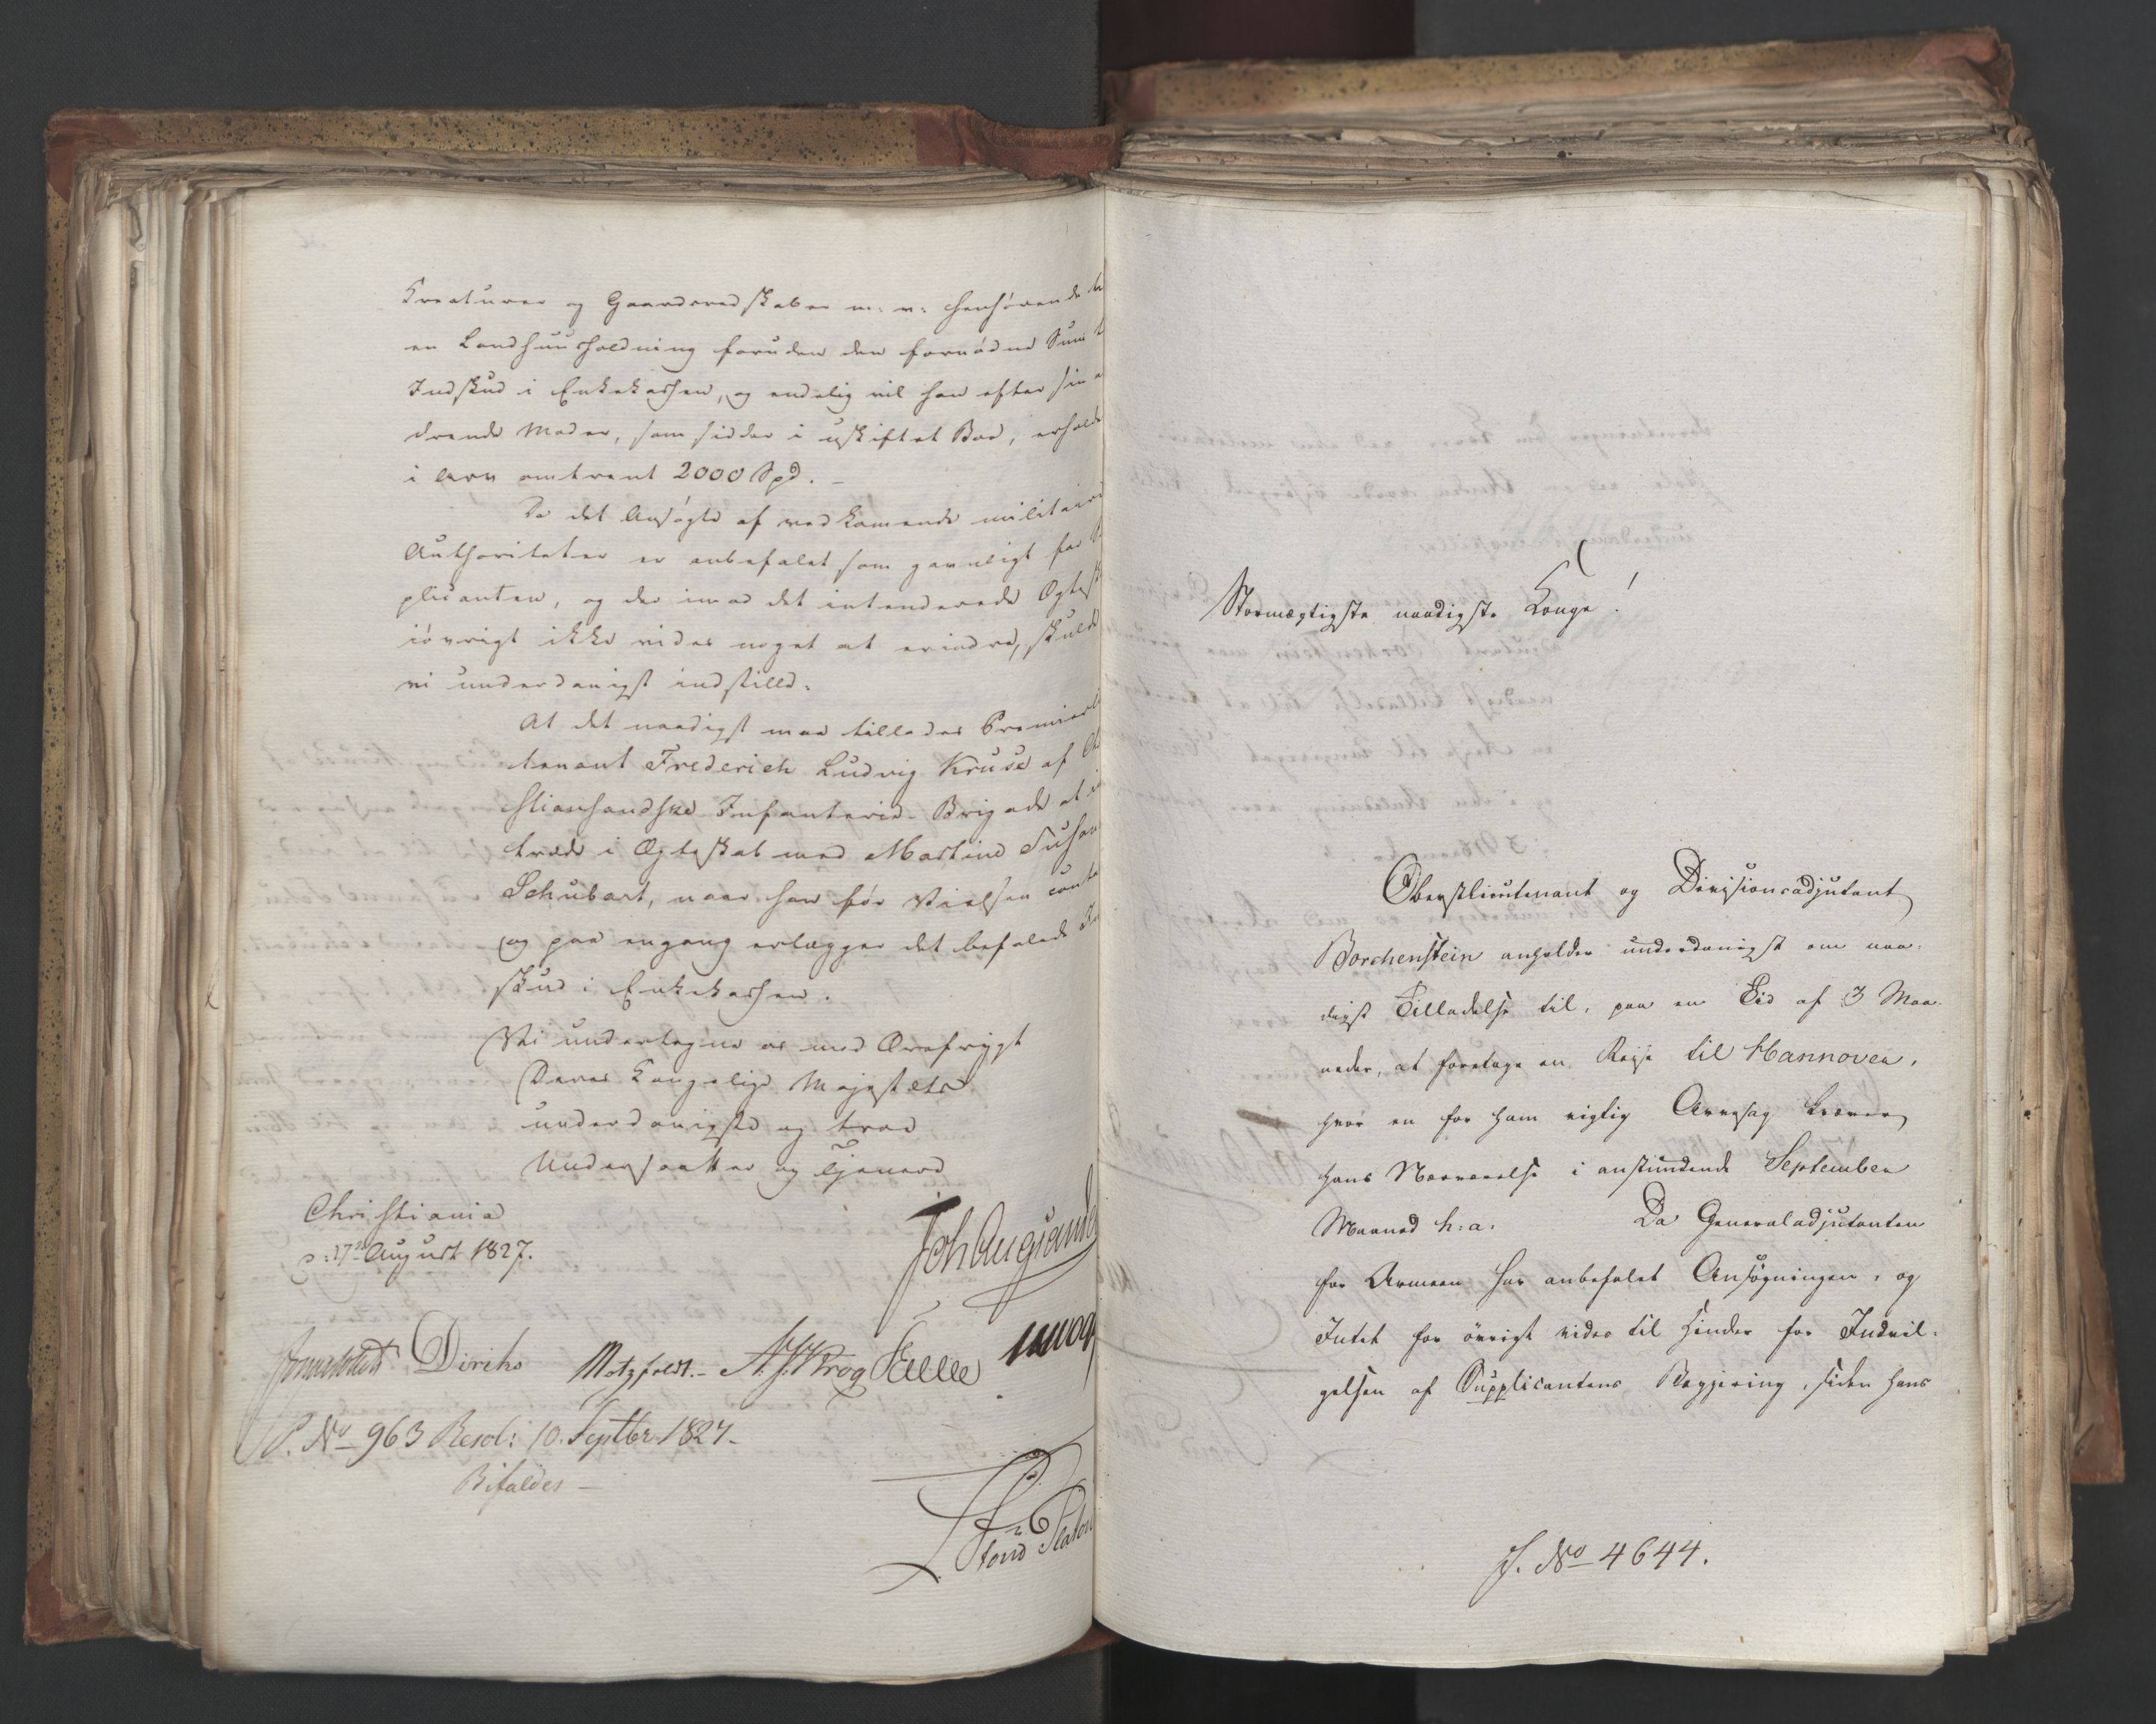 Creaturer og Gaardsredskaber m: v: henhørende
en Landhuusholdning foruden den fornødne Sum t
Indskud i Enkekassen, og endelig vil han efter sin
drende Moder, som sidder i uskiftet Boe, erholde
i Arv omtrent 2000 Spd. –
Da det Ansøgte af vedkommende militaire
Authoriteter er anbefalet som gavnligt for
plicanten, og der imod det intenderede Ægtesk
iøvrigt ikke vides noget at erindre, skulde
vi underdanigst indstille:
At det naadigst maa tillades Premierl
tenant Frederich Ludvig Kruse af
stiansandske Infanterie-Brigade at i
træde i Ægteskab med Martine Susan
Schubart, naar han før Vielsen cont
og paa engang erlægger det befalede
skud i Enkekassen.
Vi undertegne os med Ærefrygt
Deres Kongelige Majestæts
underdanigste og troe
Undersaatter og Tjenere
Christiania
d: 27de August 1827.
Diriks Motzfeldt.– Krog
P. No 963 Resol: 10. Septbr 1827–
Bifaldes –
Stormægtigste naadigste Konge!
Oberstlieutenant og Divisionsadjutant
Borchenstein anholder underdanigst om naa-
digst Tilladelse til, paa en Tid af 3 Maa-
neder, at foretage en Reise til Hannover,
hvor en for ham vigtig Arvesag kræver
hans Nærværelse i anstundende September
Maaned h: a: Da Generaladjutanten
for Armeen har anbefalet Ansøgningen, og
Intet for øvrigt vides til Hinder for Indvil-
gelsen af Supplicantens Begjering, siden hans
J. No 4644.